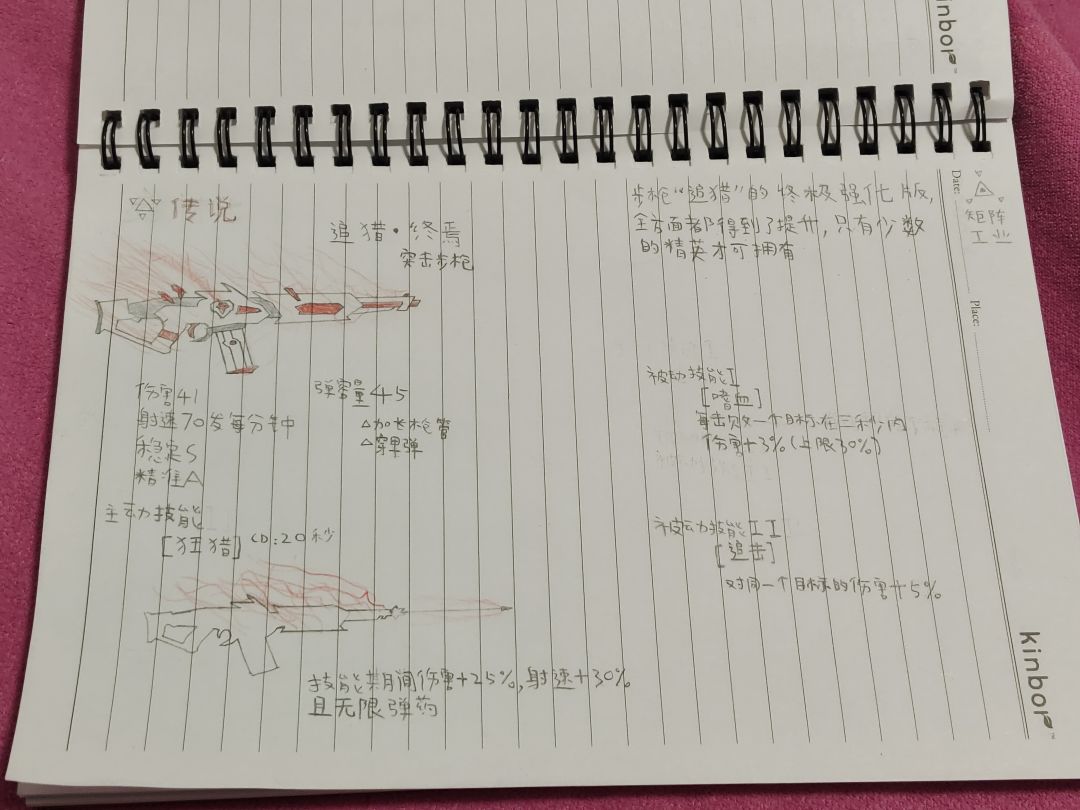 kinbor
传说
追猎·终焉
突击步枪
伤害41
射速70发每分钟
稳定S
精准A
弹容量45
△加长枪管
△穿甲弹
主动技能I
[狂猎] CD:20秒
技能期间伤害+25%,射速+30%
且无限弹药
步枪“追猎”的终极强化版,
全方面都得到了提升,只有少数
的精英才可拥有
Date:
矩阵
工业
Place:
被动技能I
[嗜血]
每击败一个目标在三秒内
伤害+3%(上限30%)
被动技能II
[追击]
对同一个目标的伤害+5%
kinbor